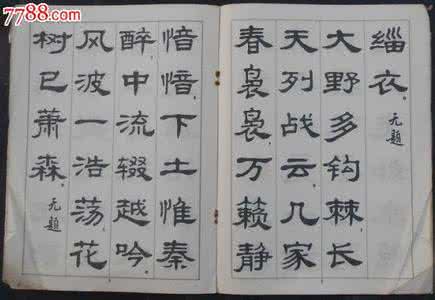 7788.com
中国收藏热线
缁衣。
无题
大野多钩棘，长
天列战云。几家
春袅袅，万籁静
愔愔。下土惟秦
醉，中流辍越吟。
风波一浩荡，花
树已萧森。
无题